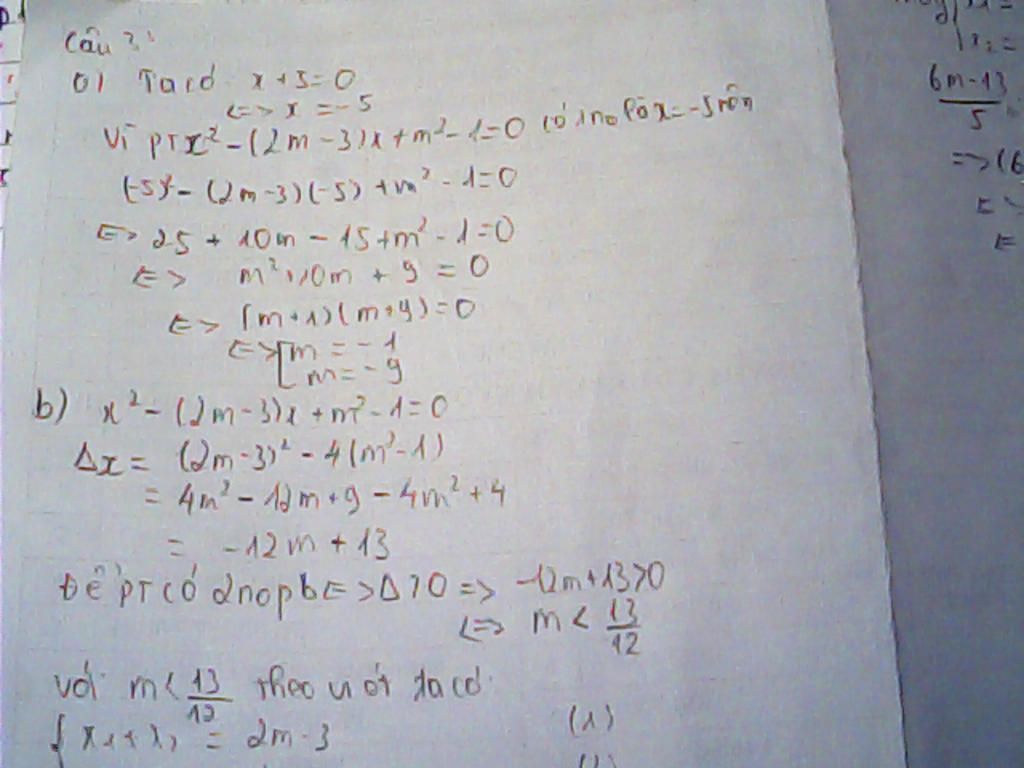 Câu 3:
a) Ta có x + 5 = 0
<=> x = -5
Vì pt x² - (2m - 3)x + m² - 1 = 0 có 1 no là x = -5 nên
(-5)² - (2m - 3)(-5) + m² - 1 = 0
<=> 25 + 10m - 15 + m² - 1 = 0
<=> m² + 10m + 9 = 0
<=> (m + 1)(m + 9) = 0
<=> [ m = -1
m = -9
b) x² - (2m - 3)x + m² - 1 = 0
Δx = (2m - 3)² - 4(m² - 1)
= 4m² - 12m + 9 - 4m² + 4
= -12m + 13
Để pt có 2 no pb <=> Δ > 0 => -12m + 13 > 0
<=> m < 13/12
với m < 13/12 theo vi ét ta có
{ x₁ + x₂ = 2m - 3 (1)
6m - 13
5
=> (6